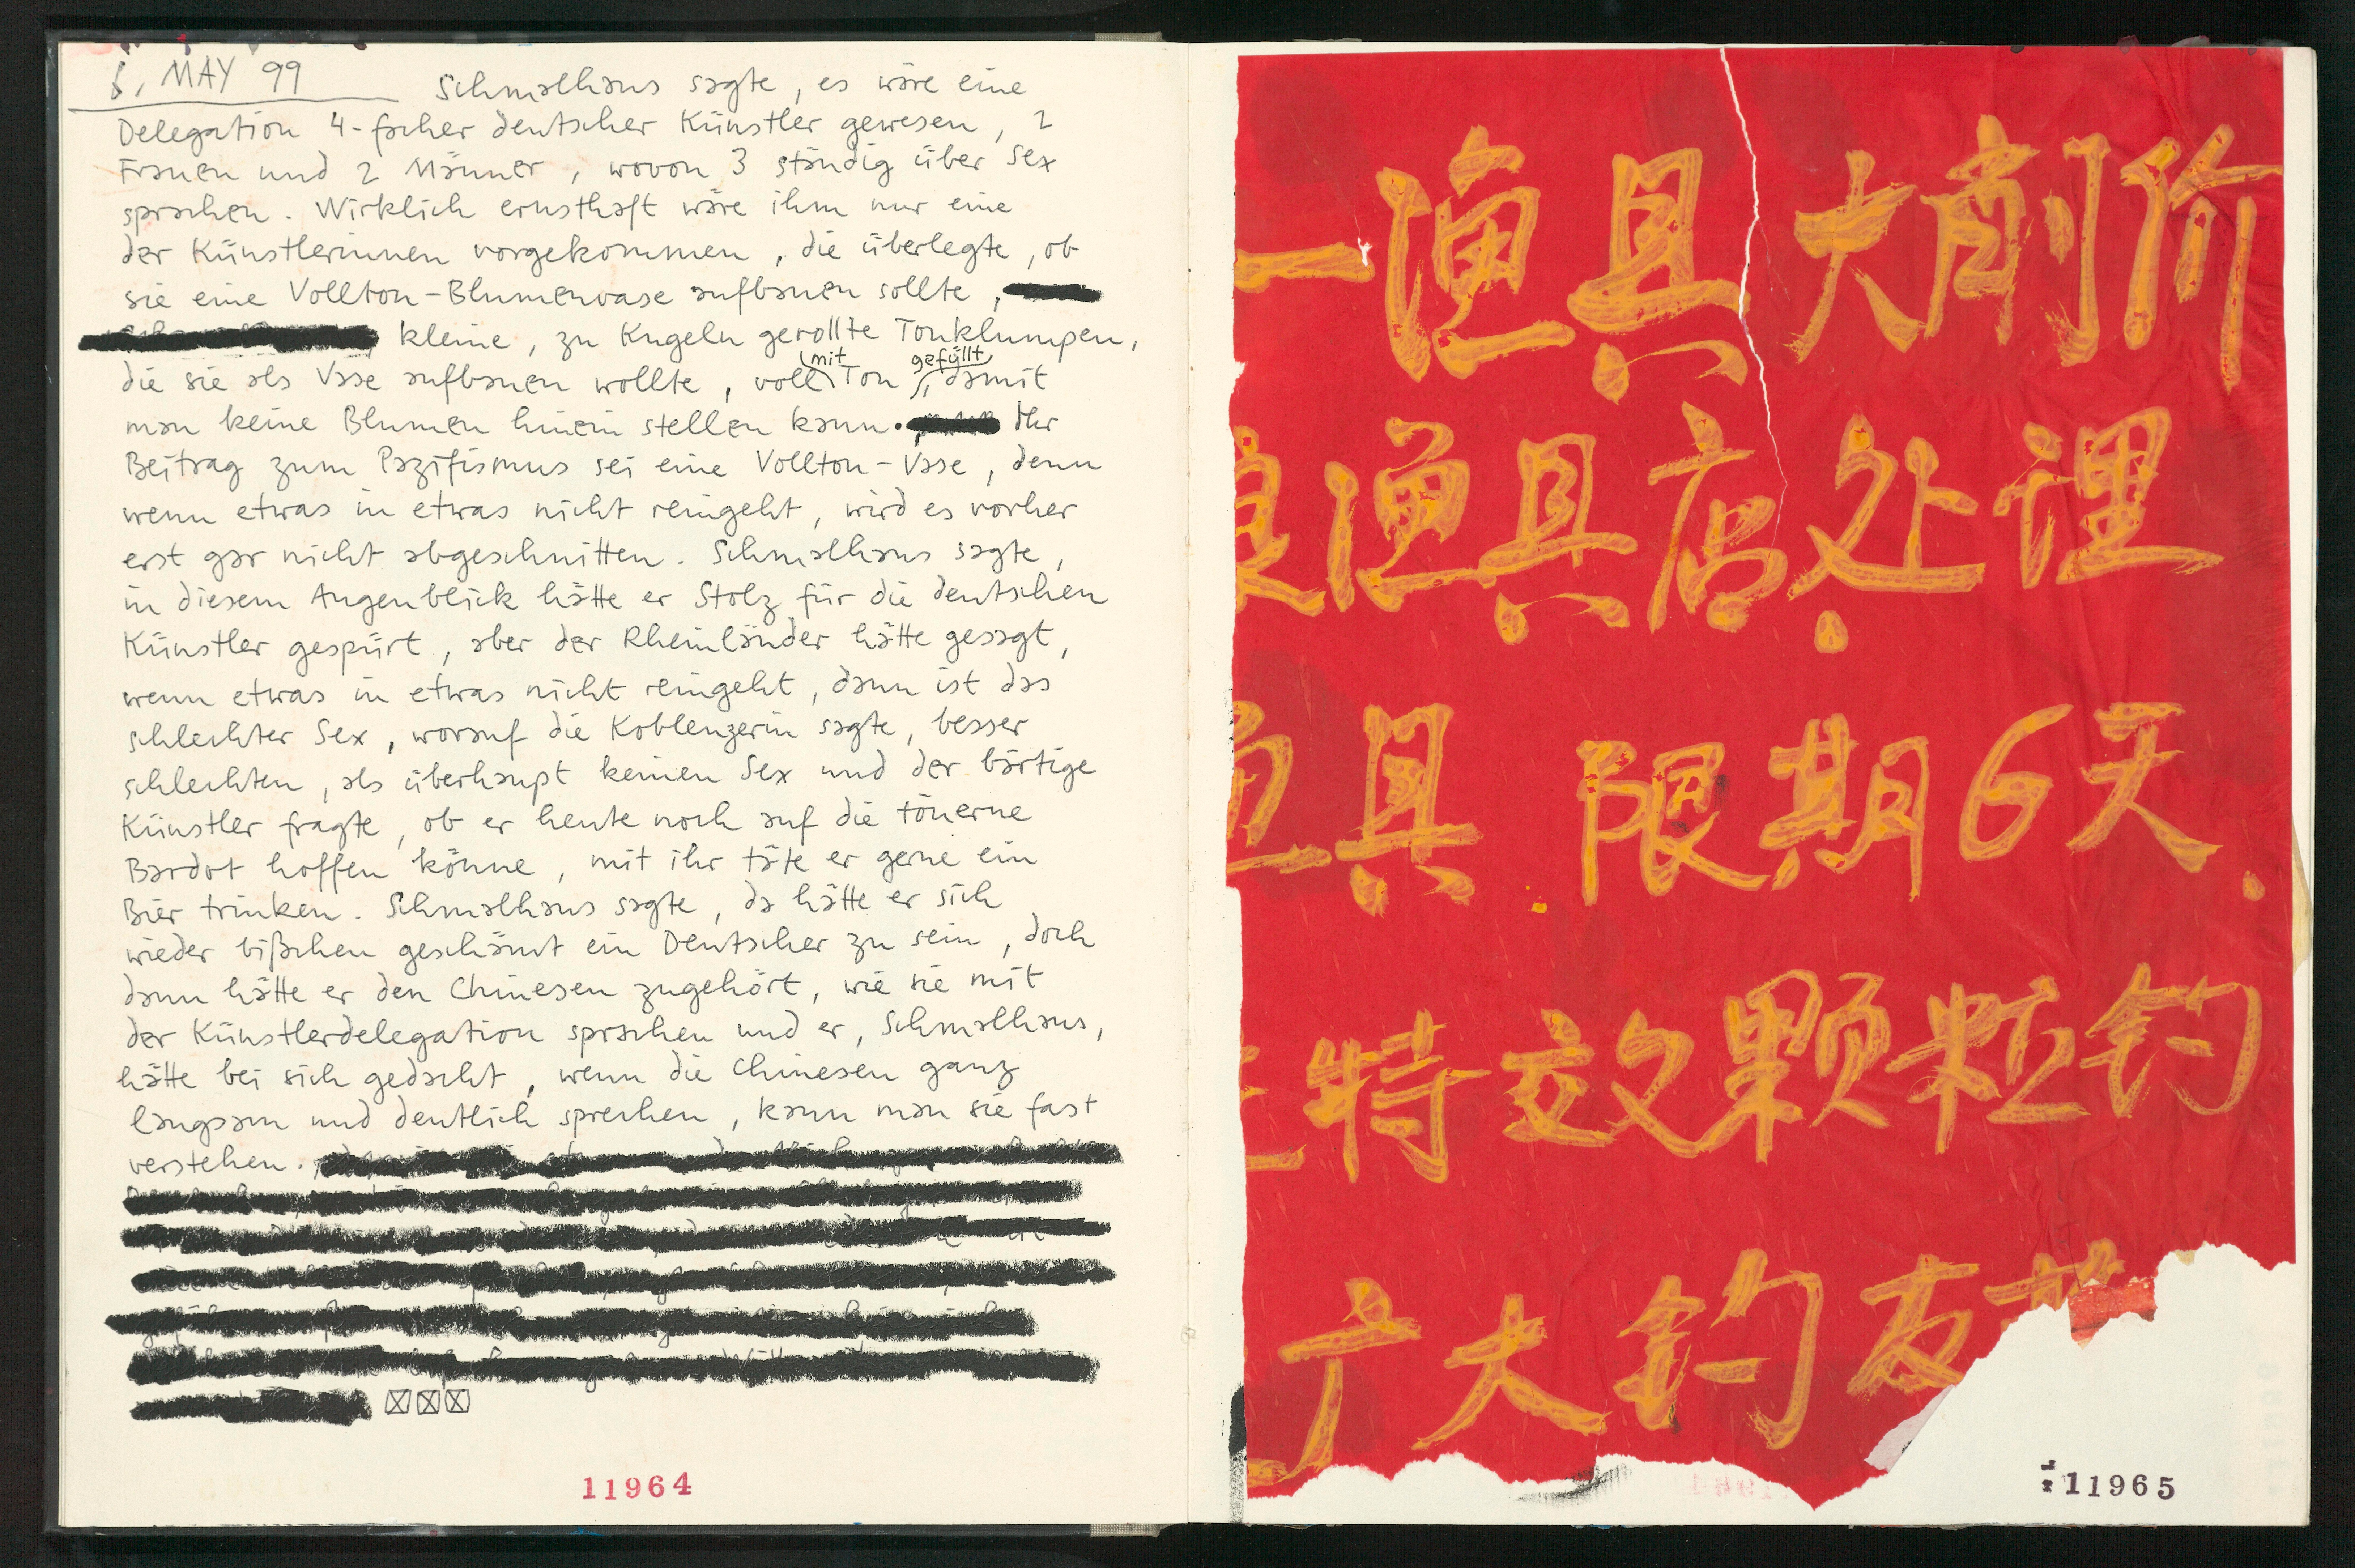 6. MAY 99
Schmalhans sagte, es wäre eine
Delegation 4-facher deutscher Künstler gewesen, 2
Frauen und 2 Männer, wovon 3 ständig über Sex
sprachen. Wirklich ernsthaft wäre ihm nur eine
der Künstlerinnen vorgekommen, die überlegte, ob
sie eine Vollton-Blumenvase aufbauen sollte,
kleine, zu Kugeln gerollte Tonklumpen,
die sie als Vase aufbauen wollte, voll mit Ton gefüllt, damit
man keine Blumen hinein stellen kann. Ihr
Beitrag zum Pazifismus sei eine Vollton-Vase, denn
wenn etwas in etwas nicht reingeht, wird es vorher
erst gar nicht abgeschnitten. Schmalhans sagte,
in diesem Augenblick hätte er Stolz für die deutschen
Künstler gespürt, aber der Rheinländer hätte gesagt,
wenn etwas in etwas nicht reingeht, dann ist das
schlechter Sex, worauf die Koblenzerin sagte, besser
schlechten, als überhaupt keinen Sex und der bärtige
Künstler fragte, ob er heute noch auf die tönerne
Bardot hoffen könne, mit ihr täte er gerne ein
Bier trinken. Schmalhans sagte, da hätte er sich
wieder bißchen geschämt ein Deutscher zu sein, doch
dann hätte er den Chinesen zugehört, wie sie mit
der Künstlerdelegation sprachen und er, Schmalhans,
hätte bei sich gedacht, wenn die Chinesen ganz
langsam und deutlich sprechen, kann man sie fast
verstehen.
11964
一渔具大削价
渔具店处理
渔具 限期6天.
特效颗粒钓
广大钓友
11965